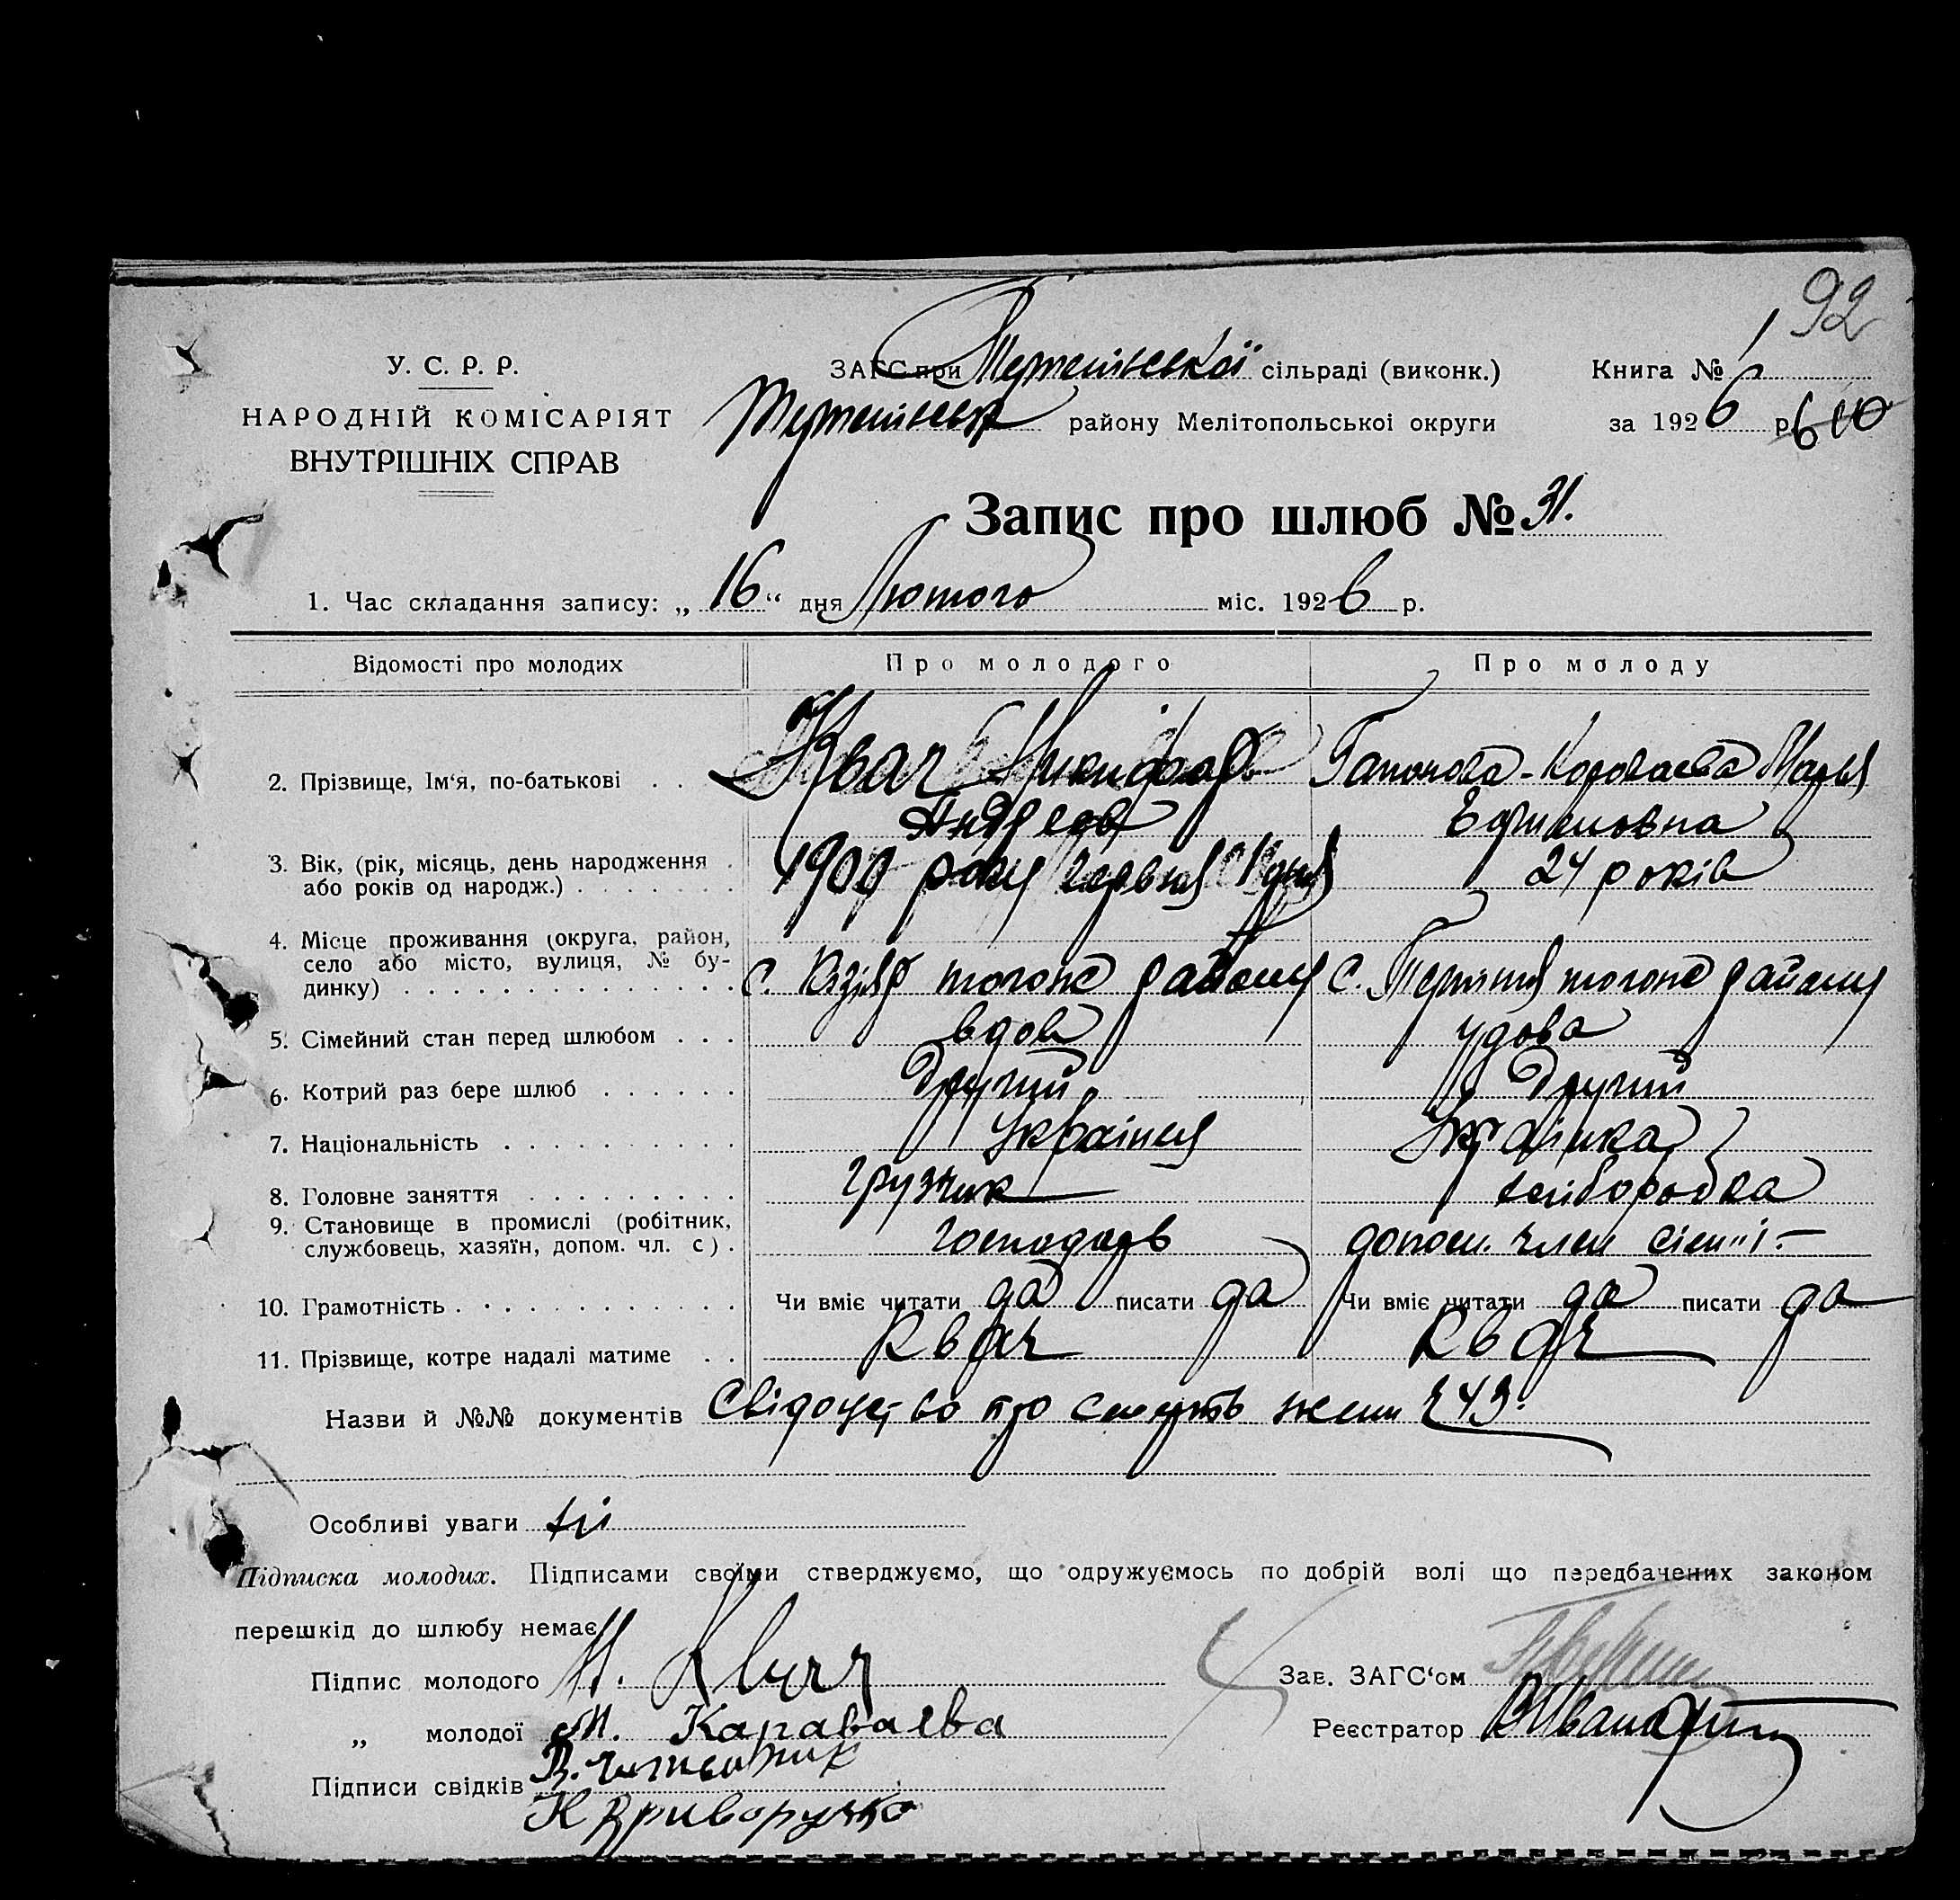 92
У. С. Р. Р.
НАРОДНІЙ КОМІСАРІЯТ
ВНУТРІШНІХ СПРАВ
ЗАГС при сільраді (виконк.)
району Мелітопольськоі округи
Книга № 1
за 1926 р.
Запис про шлюб № 31.
1. Час складання запису: „ 16 “ дня Лютого міс. 1926 р.
Відомості про молодих Про молодого Про молоду
2. Прізвище, Ім‘я, по-батькові . . Квач Никифор Гапонова-Короваева Марья
Андреев Ефимовна
3. Вік, (рік, місяць, день народження . 1900 року червня 1 дня 24 років
або років од народж.) . . . . . . .
4. Місце проживання (округа, район,
село або місто, вулиця, № бу- с. Кізіяр тогож району с. Терпіння тогож району
динку) . . . . . . . . . . . . . .
5. Сімейний стан перед шлюбом . . . вдов удова
6. Котрий раз бере шлюб . . . . . . Другий Другий
7. Національність . . . . . . . . . . Українец Українка
8. Головне заняття . . . . . . . . . грузчик хліборобка
9. Становище в промислі (робітник,
службовець, хазяїн, допом. чл. с) . господарь допом. член сімпї
10. Грамотність . . . . . . . . . . . Чи вміє читати да писати да Чи вміє читати да писати да
11. Прізвище, котре надалі матиме . . Квач Квач
Назви й №№ документів Свідоцтво про смерть жени 243.
Особливі уваги
Підписка молодих. Підписами своїми стверджуємо, що одружуємось по добрій волі що передбачених законом
перешкід до шлюбу немає
Підпис молодого Н. Квач
Зав. ЗАГС‘ом
„ молодої М. Караваева
Реєстратор
Підписи свідків
К Криворучко